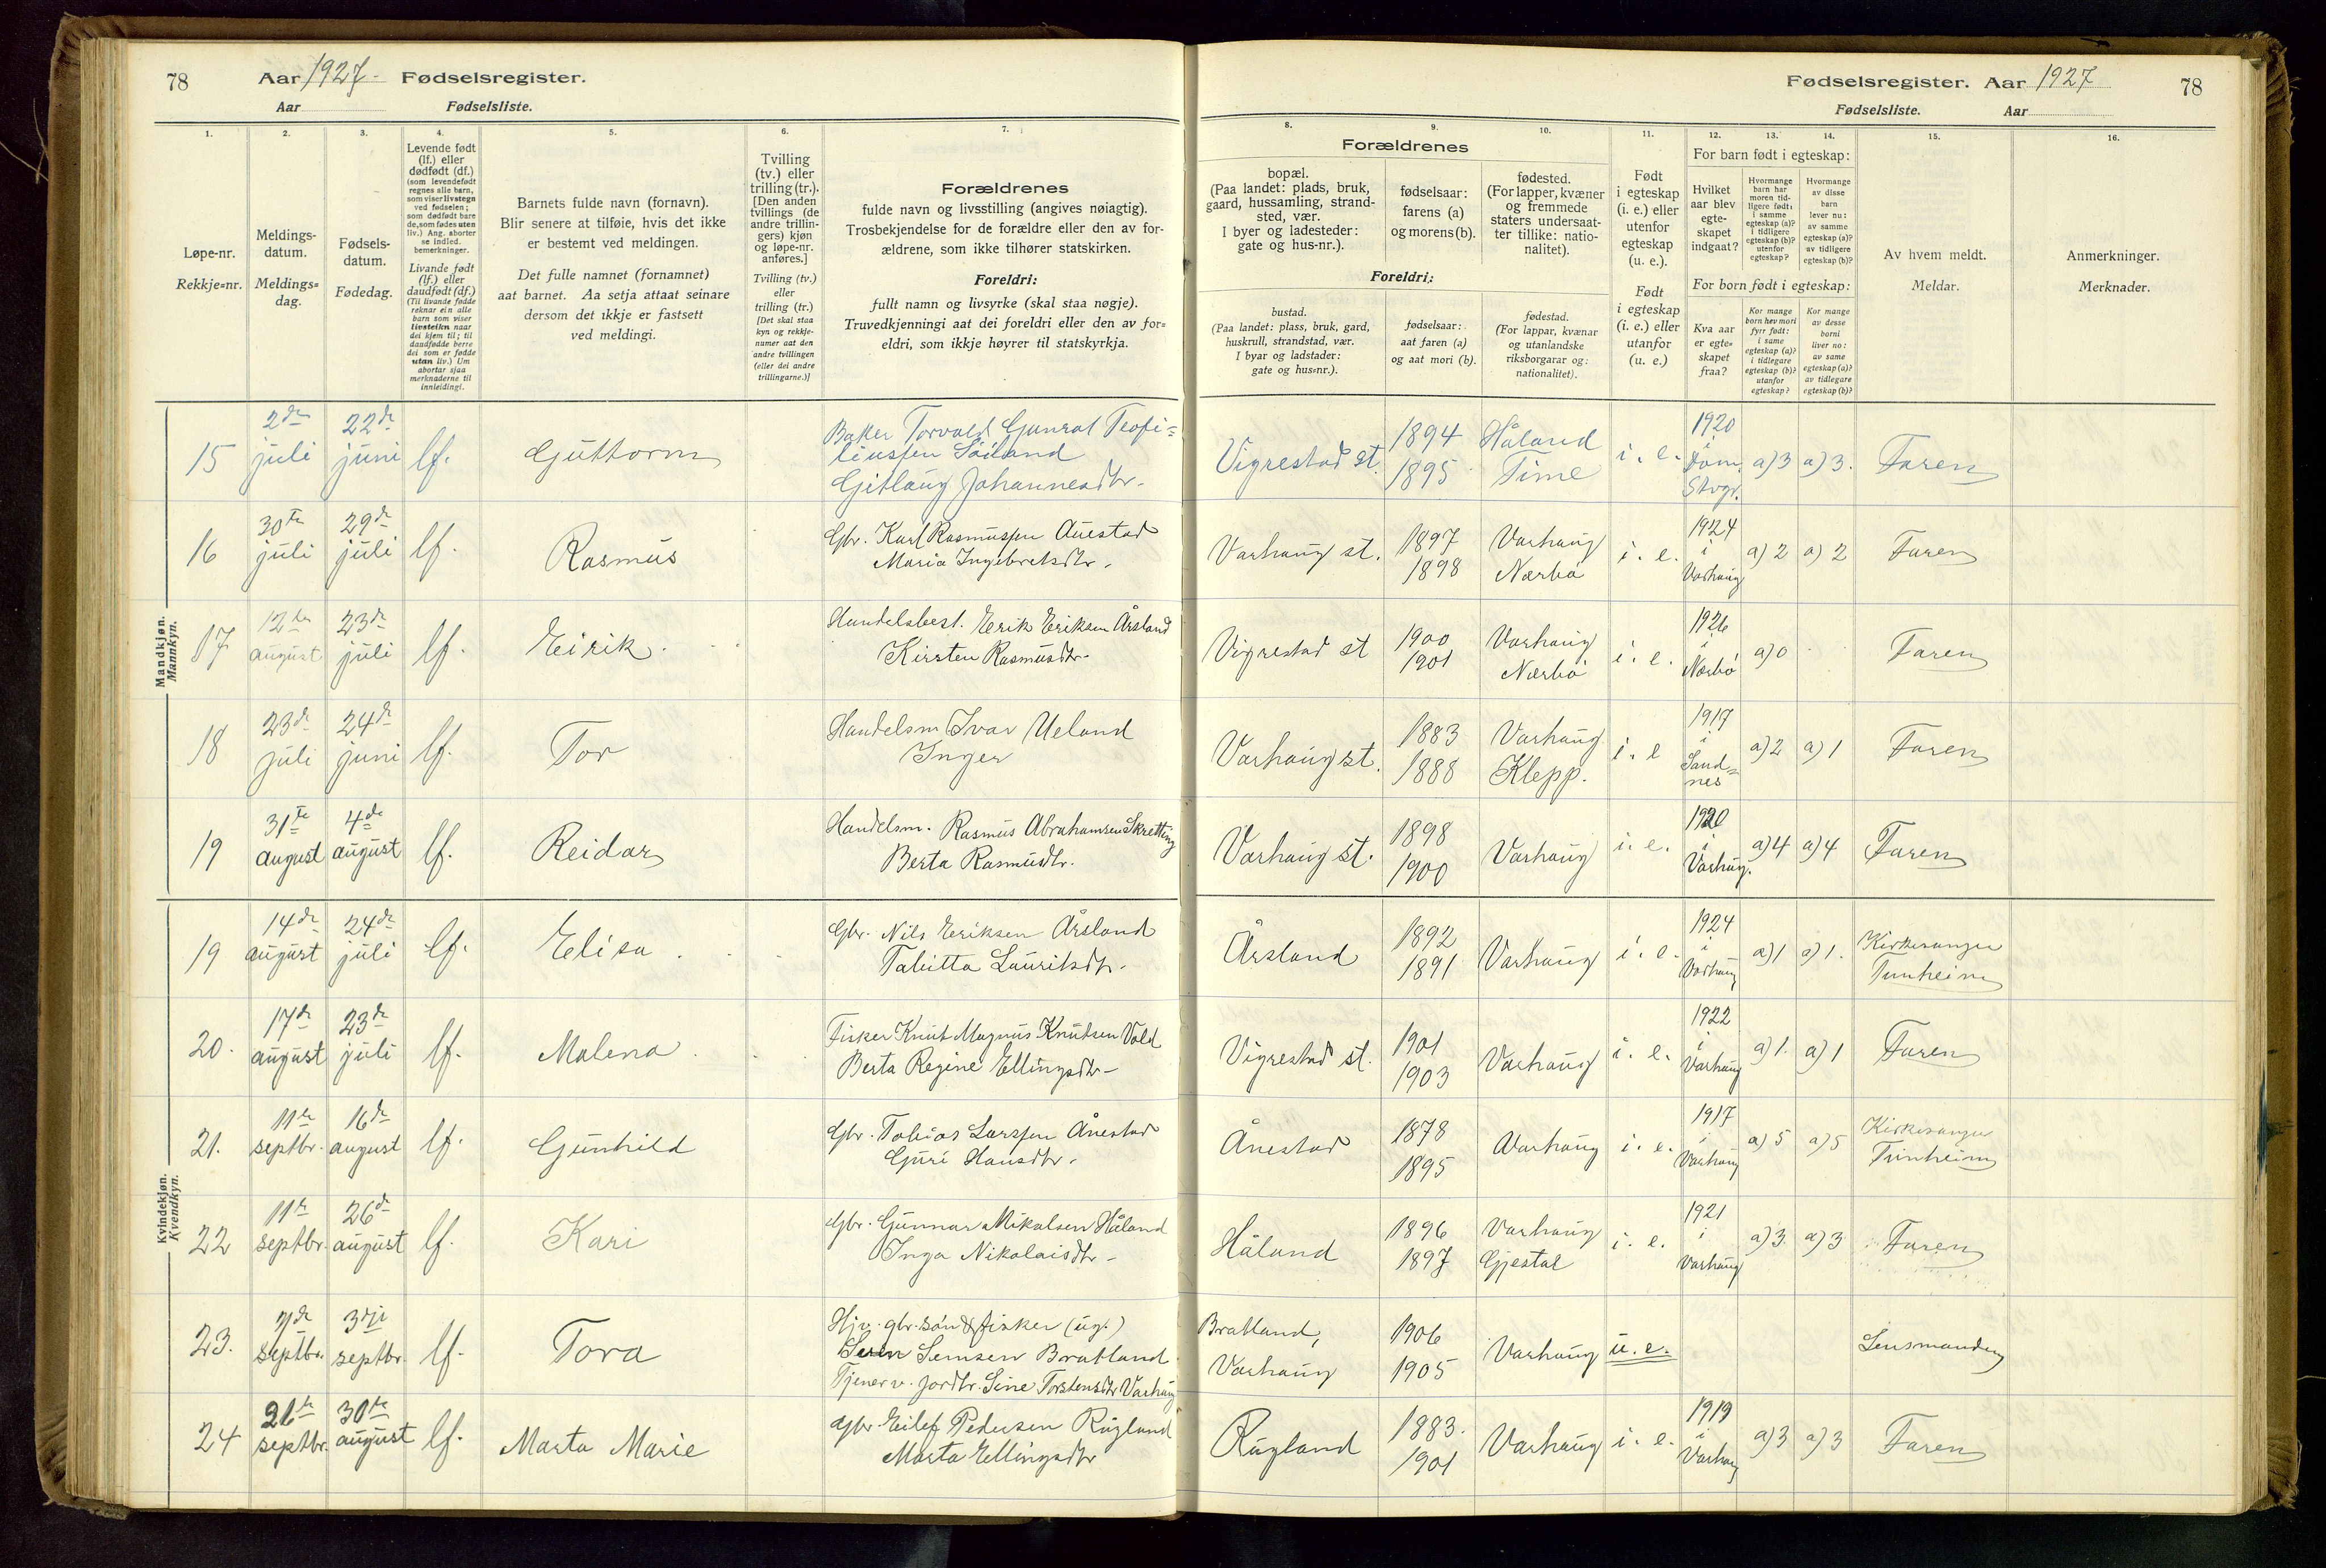 78 Aar 1927 Fødselsregister.
Aar Fødselsliste.
Fødselsregister. Aar 1927 78
Fødselsliste. Aar
1. 2. 3. 4. 5. 6. 7. 8. 9. 10. 11. 12. 13. 14. 15. 16.
Løpe-nr.
Rekkje=nr.
Meldings-
datum.
Meldings=
dag.
Fødsels-
datum.
Fødedag.
Levende født
(lf.) eller
dødfødt (df.)
(som levendefødt
regnes alle barn,
som viser livstegn
ved fødselen;
som dødfødt bare
de, som fødes uten
liv.) Ang. aborter
se indled.
bemerkninger.
Livande født
(lf.) eller
daudfødt (df.)
(Til livande fødde
reknar ein alle
barn som viser
livsteikn naar
dei kjem til; til
daudfødde berre
dei som er fødde
utan liv.) Um
abortar sjaa
merknaderne til
innleidingi.
Barnets fulde navn (fornavn).
Blir senere at tilføie, hvis det ikke
er bestemt ved meldingen.
Det fulle namnet (fornamnet)
aat barnet. Aa setja attaat seinare
dersom det ikkje er fastsett
ved meldingi.
Tvilling
(tv.) eller
trilling (tr.).
[Den anden
tvillings (de
andre trillin-
gers) kjøn
og løpe-nr.
anføres.]
Tvilling (tv.)
eller
trilling (tr.)
[Det skal staa
kyn og rekkje-
numer aat den
andre tvillingen
(eller dei andre
trillingarne.)]
Forældrenes
fulde navn og livsstilling (angives nøiagtig).
Trosbekjendelse for de forældre eller den av for-
ældrene, som ikke tilhører statskirken.
Foreldri:
fullt namn og livsyrke (skal staa nøgje).
Truvedkjenningi aat dei foreldri eller den av for=
eldri, som ikkje høyrer til statskyrkja.
Forældrenes
bopæl.
(Paa landet: plads, bruk,
gaard, hussamling, strand-
sted, vær.
I byer og ladesteder:
gate og hus-nr.).
fødselsaar:
farens (a)
og morens (b).
fødested.
(For lapper, kvæner
og fremmede
staters undersaat-
ter tillike: natio-
nalitet).
Foreldri:
bustad.
(Paa landet: plass, bruk, gard,
huskrull, strandstad, vær.
I byar og ladstader:
gate og hus=nr.).
fødselsaar:
aat faren (a)
og aat mori (b).
fødestad.
(For lappar, kvænar
og utanlandske
riksborgarar og:
nationalitet).
Født
i egteskap
(i. e.) eller
utenfor
egteskap
(u. e.).
Født
i egteskap
(i. e.) eller
utanfor
(u. e.)
For barn født i egteskap:
Hvilket
aar blev
egte-
skapet
indgaat?
Hvormange
barn har
moren tid-
ligere født:
i samme
egteskap (a)?
i tidligere
egteskap (b)?
utenfor
egteskap?
Hvormange
av disse
barn
lever nu:
av samme
egteskap (a)?
av tidligere
egteskap (b)?
For born født i egteskap:
Kva aar
er egte-
skapet
fraa?
Kor mange
born hev mori
fyrr født:
i same
egteskap (a)?
i tidlegare
egteskap (b)?
utanfor
egteskap?
Kor mange
av desse
borni
liver no:
av same
egteskap (a)?
av tidlegare
egteskap (b)?
Av hvem meldt.
Meldar.
Anmerkninger.
Merknader.
Mandkjøn.
Mannkyn.
15 2de juli 22de juni lf. Guttorm Baker Torvald Gunval Teofi=
liussen Söiland
Gitlaug Johannesdtr. Vigrestad st. 1894 1895 Håland Time i. e. 1920 i Dom. Stvgr. a) 3 a) 3. Faren
16 30te juli 29de juli lf. Rasmus Gbr. Karl Rasmussen Auestad
Maria Ingebretsdtr. Varhaug st. 1897 1898 Varhaug Nærbö i. e. 1924 i Varhaug a) 2 a) 2 Faren
17 12te august 23de juli lf. Eirik Handelsbest. Erik Eriksen Årsland
Kirsten Rasmusdtr. Vigrestad st 1900 1901 Varhaug Nærbö i. e. 1926 i Nærbö a) 0 Faren
18 23de juli 24de juni lf. Tor Handelsm Ivar Ueland
Inger Varhaug st. 1883 1888 Varhaug Klepp. i. e 1917 i Sand=nes a) 2 a) 1 Faren
19 31te august 4de august lf. Reidar Handelsm. Rasmus Abrahamsen Skretting
Berta Rasmusdtr. Varhaug st. 1898 1900 Varhaug i. e. 1920 i Varhaug. a) 4 a) 4 Faren
Kvindekjøn.
Kvendkyn.
19 14de august 24de juli lf. Elisa Gbr. Nils Eriksen Årsland
Tabitta Lauritsdtr. Årsland 1892 1891 Varhaug i. e. 1924 i Varhaug a) 1 a) 1. Kirkesanger
Tunheim
20. 17de august 23de juli lf. Malena Fisker Knut Magnus Knutsen Vold
Berta Regine Ellingsdtr Vigrestad st. 1901 1903 Varhaug i. e. 1922 i Varhaug a) 1. a) 1 Faren
21. 11te septbr. 16de august lf. Gunhild Gbr. Tobias Larssen Ånestad
Guri Hansdtr. Ånestad 1878 1895 Varhaug i. e. 1917 i Varhaug a) 5 a) 5 Kirkesanger
Tunheim
22 11te septbr. 26de august lf. Kari Gbr. Gunnar Mikalsen Håland
Inga Nikolaisdtr Håland 1896 1897 Varhaug Gjestal i. e. 1921 i Varhaug a) 3. a) 3 Faren
23. septbr. 3dje septbr lf. Tora Hjv. gbr. sön & fisker (ug.)
Semsen Bratland
Tjener v. jordbr. Sine Torstensdtr Varhaug Bratland, Varhaug 1906 1905 Varhaug u. e. Lensmanden
24 septbr. 30te august lf. Marta Marie Gbr Eilef Pedersen Rugland
Marta Ellingsdtr Rugland 1883. 1901 Varhaug i. e. 1919 i Varhaug a) 3 a) 3 Faren